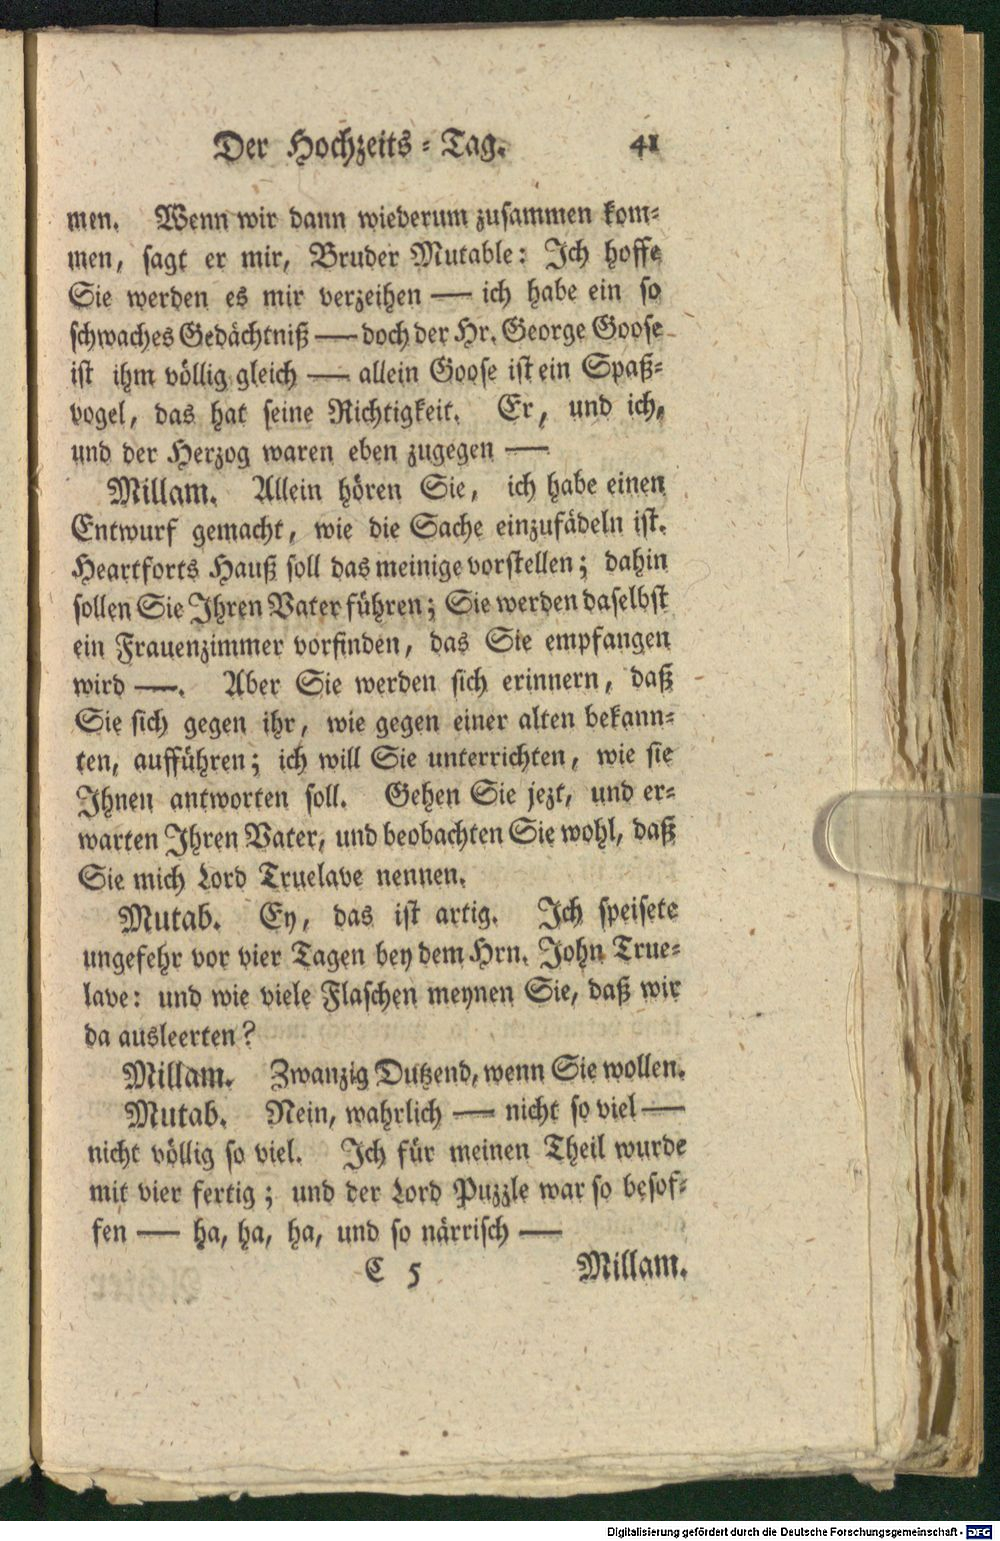 Der Hochzeits-Tag. 41
men. Wenn wir dann wiederum zusammen kom-
men, sagt er mir, Bruder Mutable: Ich hoffe
Sie werden es mir verzeihen — ich habe ein so
schwaches Gedächtniß — doch der Hr. George Goose
ist ihm völlig gleich — allein Goose ist ein Spaß-
vogel, das hat seine Richtigkeit. Er, und ich,
und der Herzog waren eben zugegen —
Millam. Allein hören Sie, ich habe einen
Entwurf gemacht, wie die Sache einzufädeln ist.
Heartforts Hauß soll das meinige vorstellen; dahin
sollen Sie Ihren Vater führen; Sie werden daselbst
ein Frauenzimmer vorfinden, das Sie empfangen
wird —. Aber Sie werden sich erinnern, daß
Sie sich gegen ihr, wie gegen einer alten bekann-
ten, aufführen; ich will Sie unterrichten, wie sie
Ihnen antworten soll. Gehen Sie jezt, und er-
warten Ihren Vater, und beobachten Sie wohl, daß
Sie mich Lord Truelave nennen.
Mutab. Ey, das ist artig. Ich speisete
ungefehr vor vier Tagen bey dem Hrn. John True-
lave: und wie viele Flaschen meynen Sie, daß wir
da ausleerten?
Millam. Zwanzig Dutzend, wenn Sie wollen.
Mutab. Nein, wahrlich — nicht so viel —
nicht völlig so viel. Ich für meinen Theil wurde
mit vier fertig; und der Lord Puzzle war so besof-
fen — ha, ha, ha, und so närrisch —
C 5 Millam.
Digitalisierung gefördert durch die Deutsche Forschungsgemeinschaft - DFG